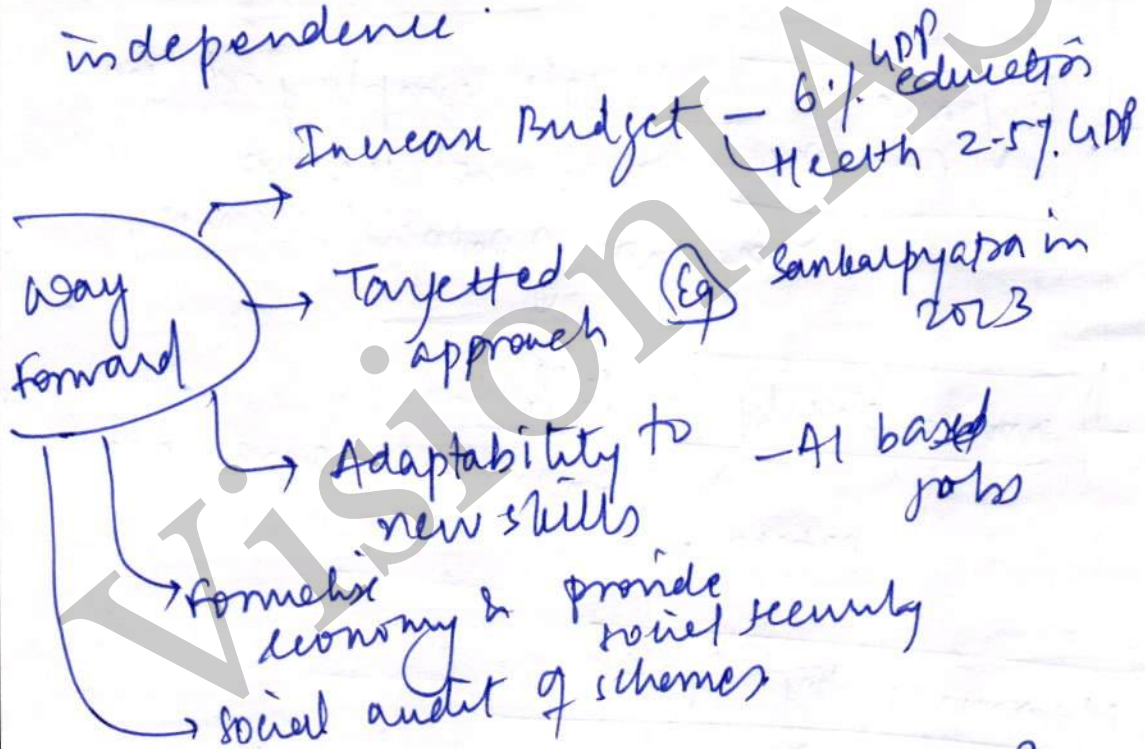 independence.
Increase Budget – 6% GDP education
Health 2.5% GDP
Way
Forward
Targetted
approach Eg Sankalpyatra in
2023
Adaptability to
new skills – AI based
jobs
Formalise
economy & provide
social security
social audit of schemes
VisionIAS